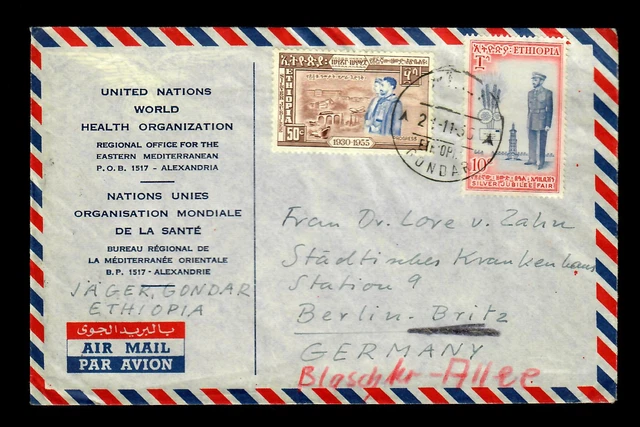 UNITED NATIONS
WORLD
HEALTH ORGANIZATION
REGIONAL OFFICE FOR THE
EASTERN MEDITERRANEAN
P.O.B. 1517 - ALEXANDRIA
NATIONS UNIES
ORGANISATION MONDIALE
DE LA SANTÉ
BUREAU RÉGIONAL DE
LA MÉDITERRANÉE ORIENTALE
B.P. 1517 - ALEXANDRIE
JÄGER, GONDAR
ETHIOPIA
بالبريد الجوى
AIR MAIL
PAR AVION
ETHIOPIA
50c
PROGRESS
1930-1955
ኢትዮጵያ·ETHIOPIA
10c
SILVER JUBILEE FAIR
GONDAR
Frau Dr. Lore v. Zahn
Städtisches Krankenhaus
Station 9
Berlin-Britz
GERMANY
Blaschko-Allee